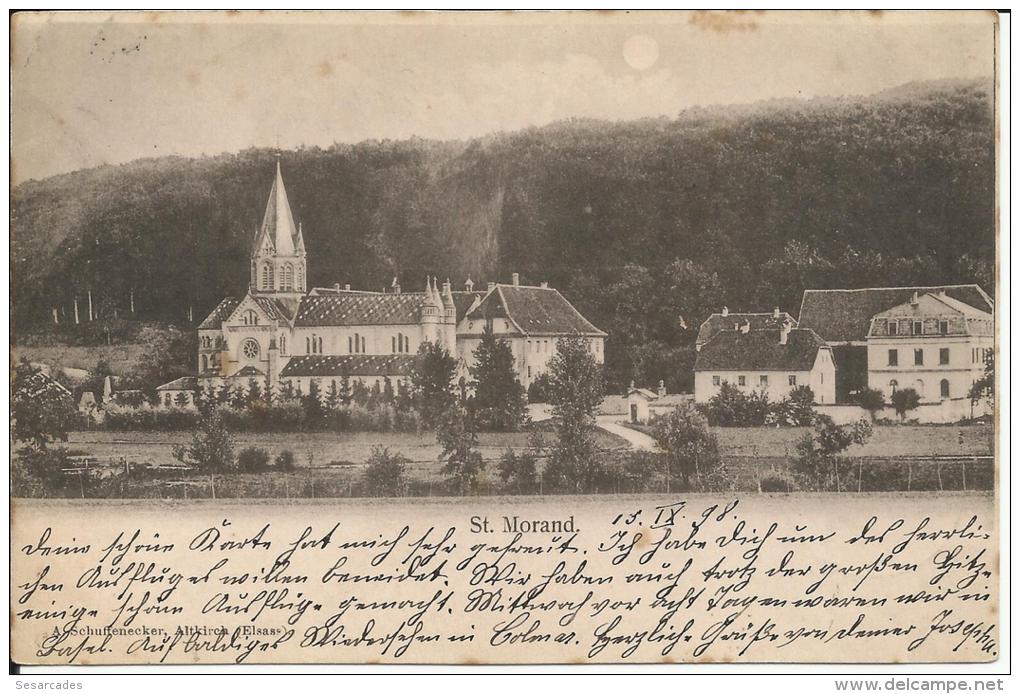 St. Morand.
15. IX. 98.
Deine schöne Karte hat mich sehr gefreut. Ich habe Dich um des herrli-
chen Ausfluges willen beneidet. Wir haben auch trotz der großen Hitze
einige schöne Ausflüge gemacht. Mittwoch vor acht Tagen waren wir in
A. Schuffenecker, Altkirch (Elsass)
Basel. Auf baldiges Wiedersehen in Colmar. Herzliche Grüße von Deiner Josepha.
Sesarcades
www.delcampe.net